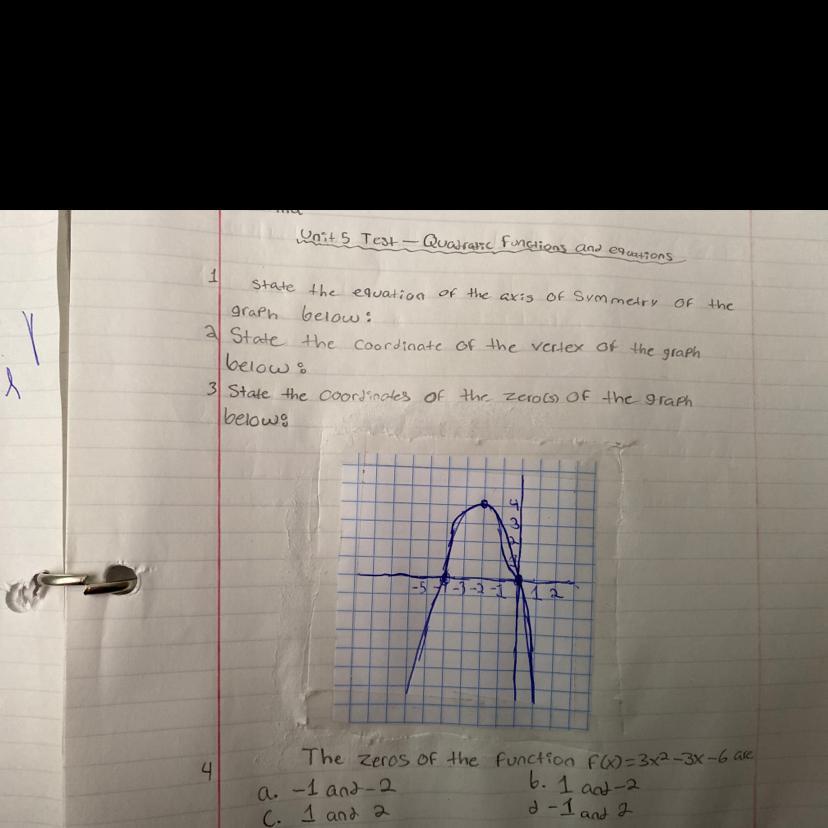 Unit 5 Test — Quadratic Functions and equations
1 State the equation of the axis of Symmetry of the
graph below:
2 State the coordinate of the vertex of the graph
below:
3 State the coordinates of the zero(s) of the graph
below:
4
3
2
1
-5 -4 -3 -2 -1 1 2
4 The zeros of the function f(x)=3x²-3x-6 are
a. -1 and -2 b. 1 and -2
c. 1 and 2 d -1 and 2